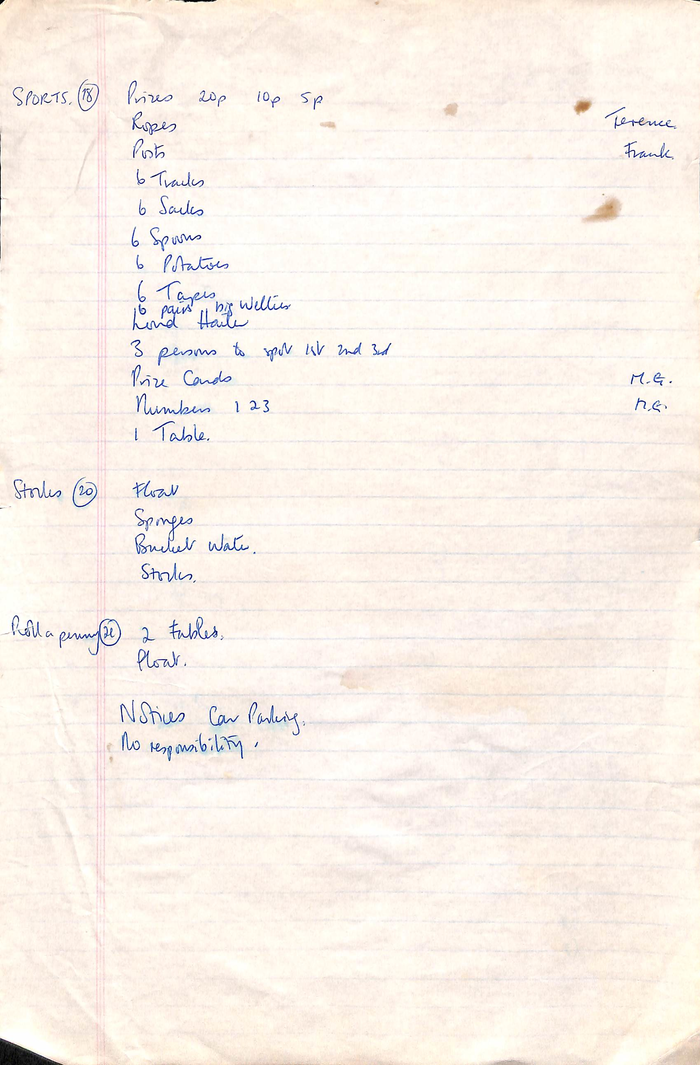 SPORTS. 18 Prizes 20p 10p 5p
Ropes Terence
Posts Frank
6 Tracks
6 Sacks
6 Spoons
6 Potatoes
6 Tapes
6 pairs big Wellies
Loud Hailer
3 persons to spot 1st 2nd 3rd
Prize Cards M.G.
Numbers 1 2 3 M.G.
1 Table.
Stocks 20 Float
Sponges
Bucket Water.
Stocks.
Roll a penny 21 2 Tables.
Float.
Notices Car Parking.
No responsibility.